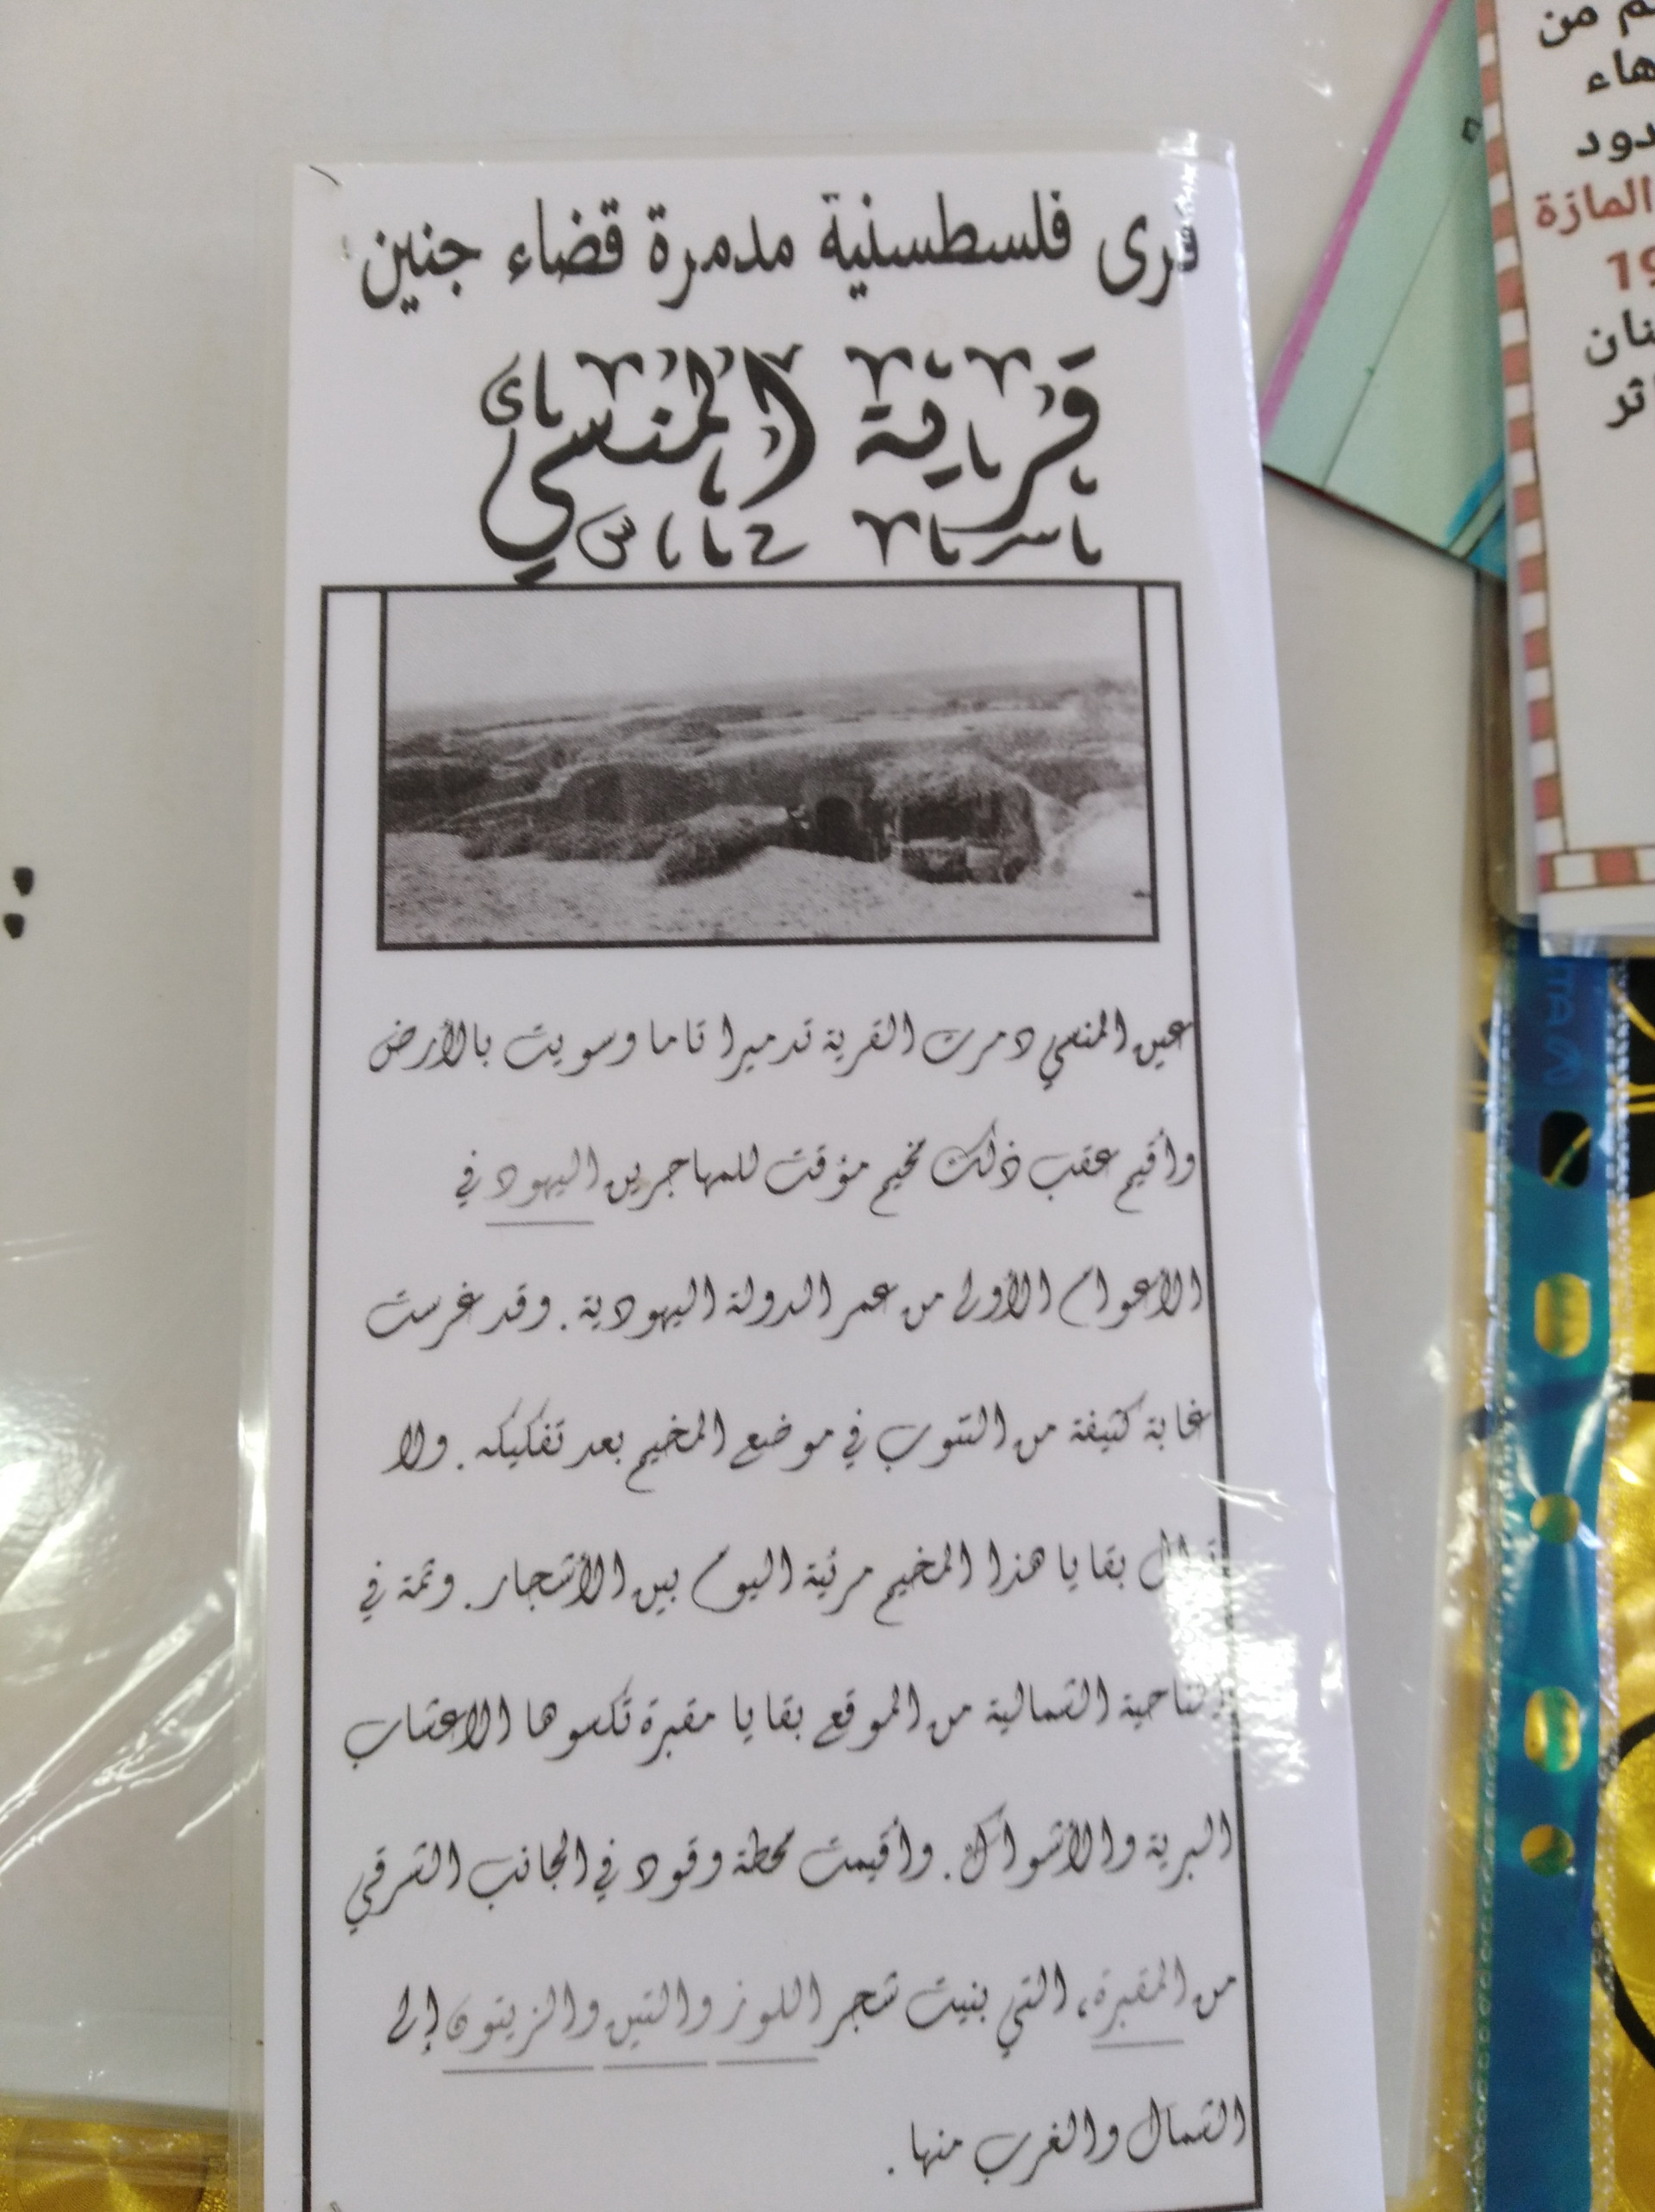 قرى فلسطسنية مدمرة قضاء جنين
قرية المنسي
عين المنسي دمرت القرية تدميرا تاما وسويت بالأرض
وأقيم عقب ذلك مخيم مؤقت للمهاجرين اليهود في
الأعوام الأولى من عمر الدولة اليهودية. وقد غرست
غابة كثيفة من التنوب في موضع المخيم بعد تفكيكه. ولا
تزال بقايا هذا المخيم مرئية اليوم بين الأشجار. وثمة في
الناحية الشمالية من الموقع بقايا مقبرة تكسوها الاعشاب
البرية والأشواك. وأقيمت محطة وقود في الجانب الشرقي
من المقبرة، التي بنيت شجر اللوز والتين والزيتون إلى
الشمال والغرب منها.
م من
هاء
دود
المازة
19
نان
اثر